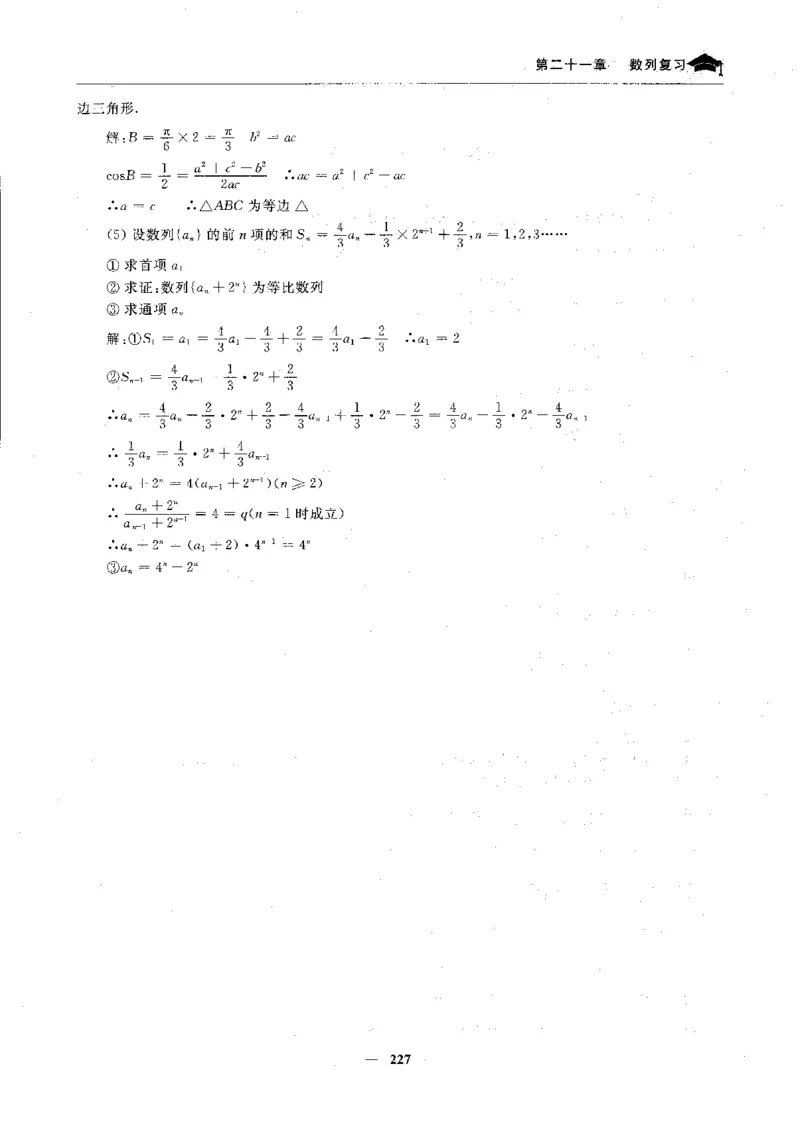 第二十一章 数列复习
边三角形.
解:B = π/6 × 2 = π/3  b² = ac
cosB = 1/2 = (a² + c² − b²)/2ac  ∴ac = a² + c² − ac
∴a = c  ∴△ABC 为等边 △
(5) 设数列{aₙ} 的前 n 项的和 Sₙ = 4/3 aₙ − 1/3 × 2ⁿ⁺¹ + 2/3, n = 1,2,3……
① 求首项 a₁
② 求证:数列{aₙ + 2ⁿ} 为等比数列
③ 求通项 aₙ
解:①S₁ = a₁ = 4/3 a₁ − 4/3 + 2/3 = 4/3 a₁ − 2/3  ∴a₁ = 2
②Sₙ₋₁ = 4/3 aₙ₋₁ − 1/3 · 2ⁿ + 2/3
∴aₙ = 4/3 aₙ − 2/3 · 2ⁿ + 2/3 − 4/3 aₙ₋₁ + 1/3 · 2ⁿ − 2/3 = 4/3 aₙ − 1/3 · 2ⁿ − 4/3 aₙ₋₁
∴ 1/3 aₙ = 1/3 · 2ⁿ + 4/3 aₙ₋₁
∴aₙ + 2ⁿ = 4(aₙ₋₁ + 2ⁿ⁻¹)(n ⩾ 2)
∴ (aₙ + 2ⁿ)/(aₙ₋₁ + 2ⁿ⁻¹) = 4 = q(n = 1 时成立)
∴aₙ + 2ⁿ = (a₁ + 2) · 4ⁿ⁻¹ = 4ⁿ
③aₙ = 4ⁿ − 2ⁿ
— 227